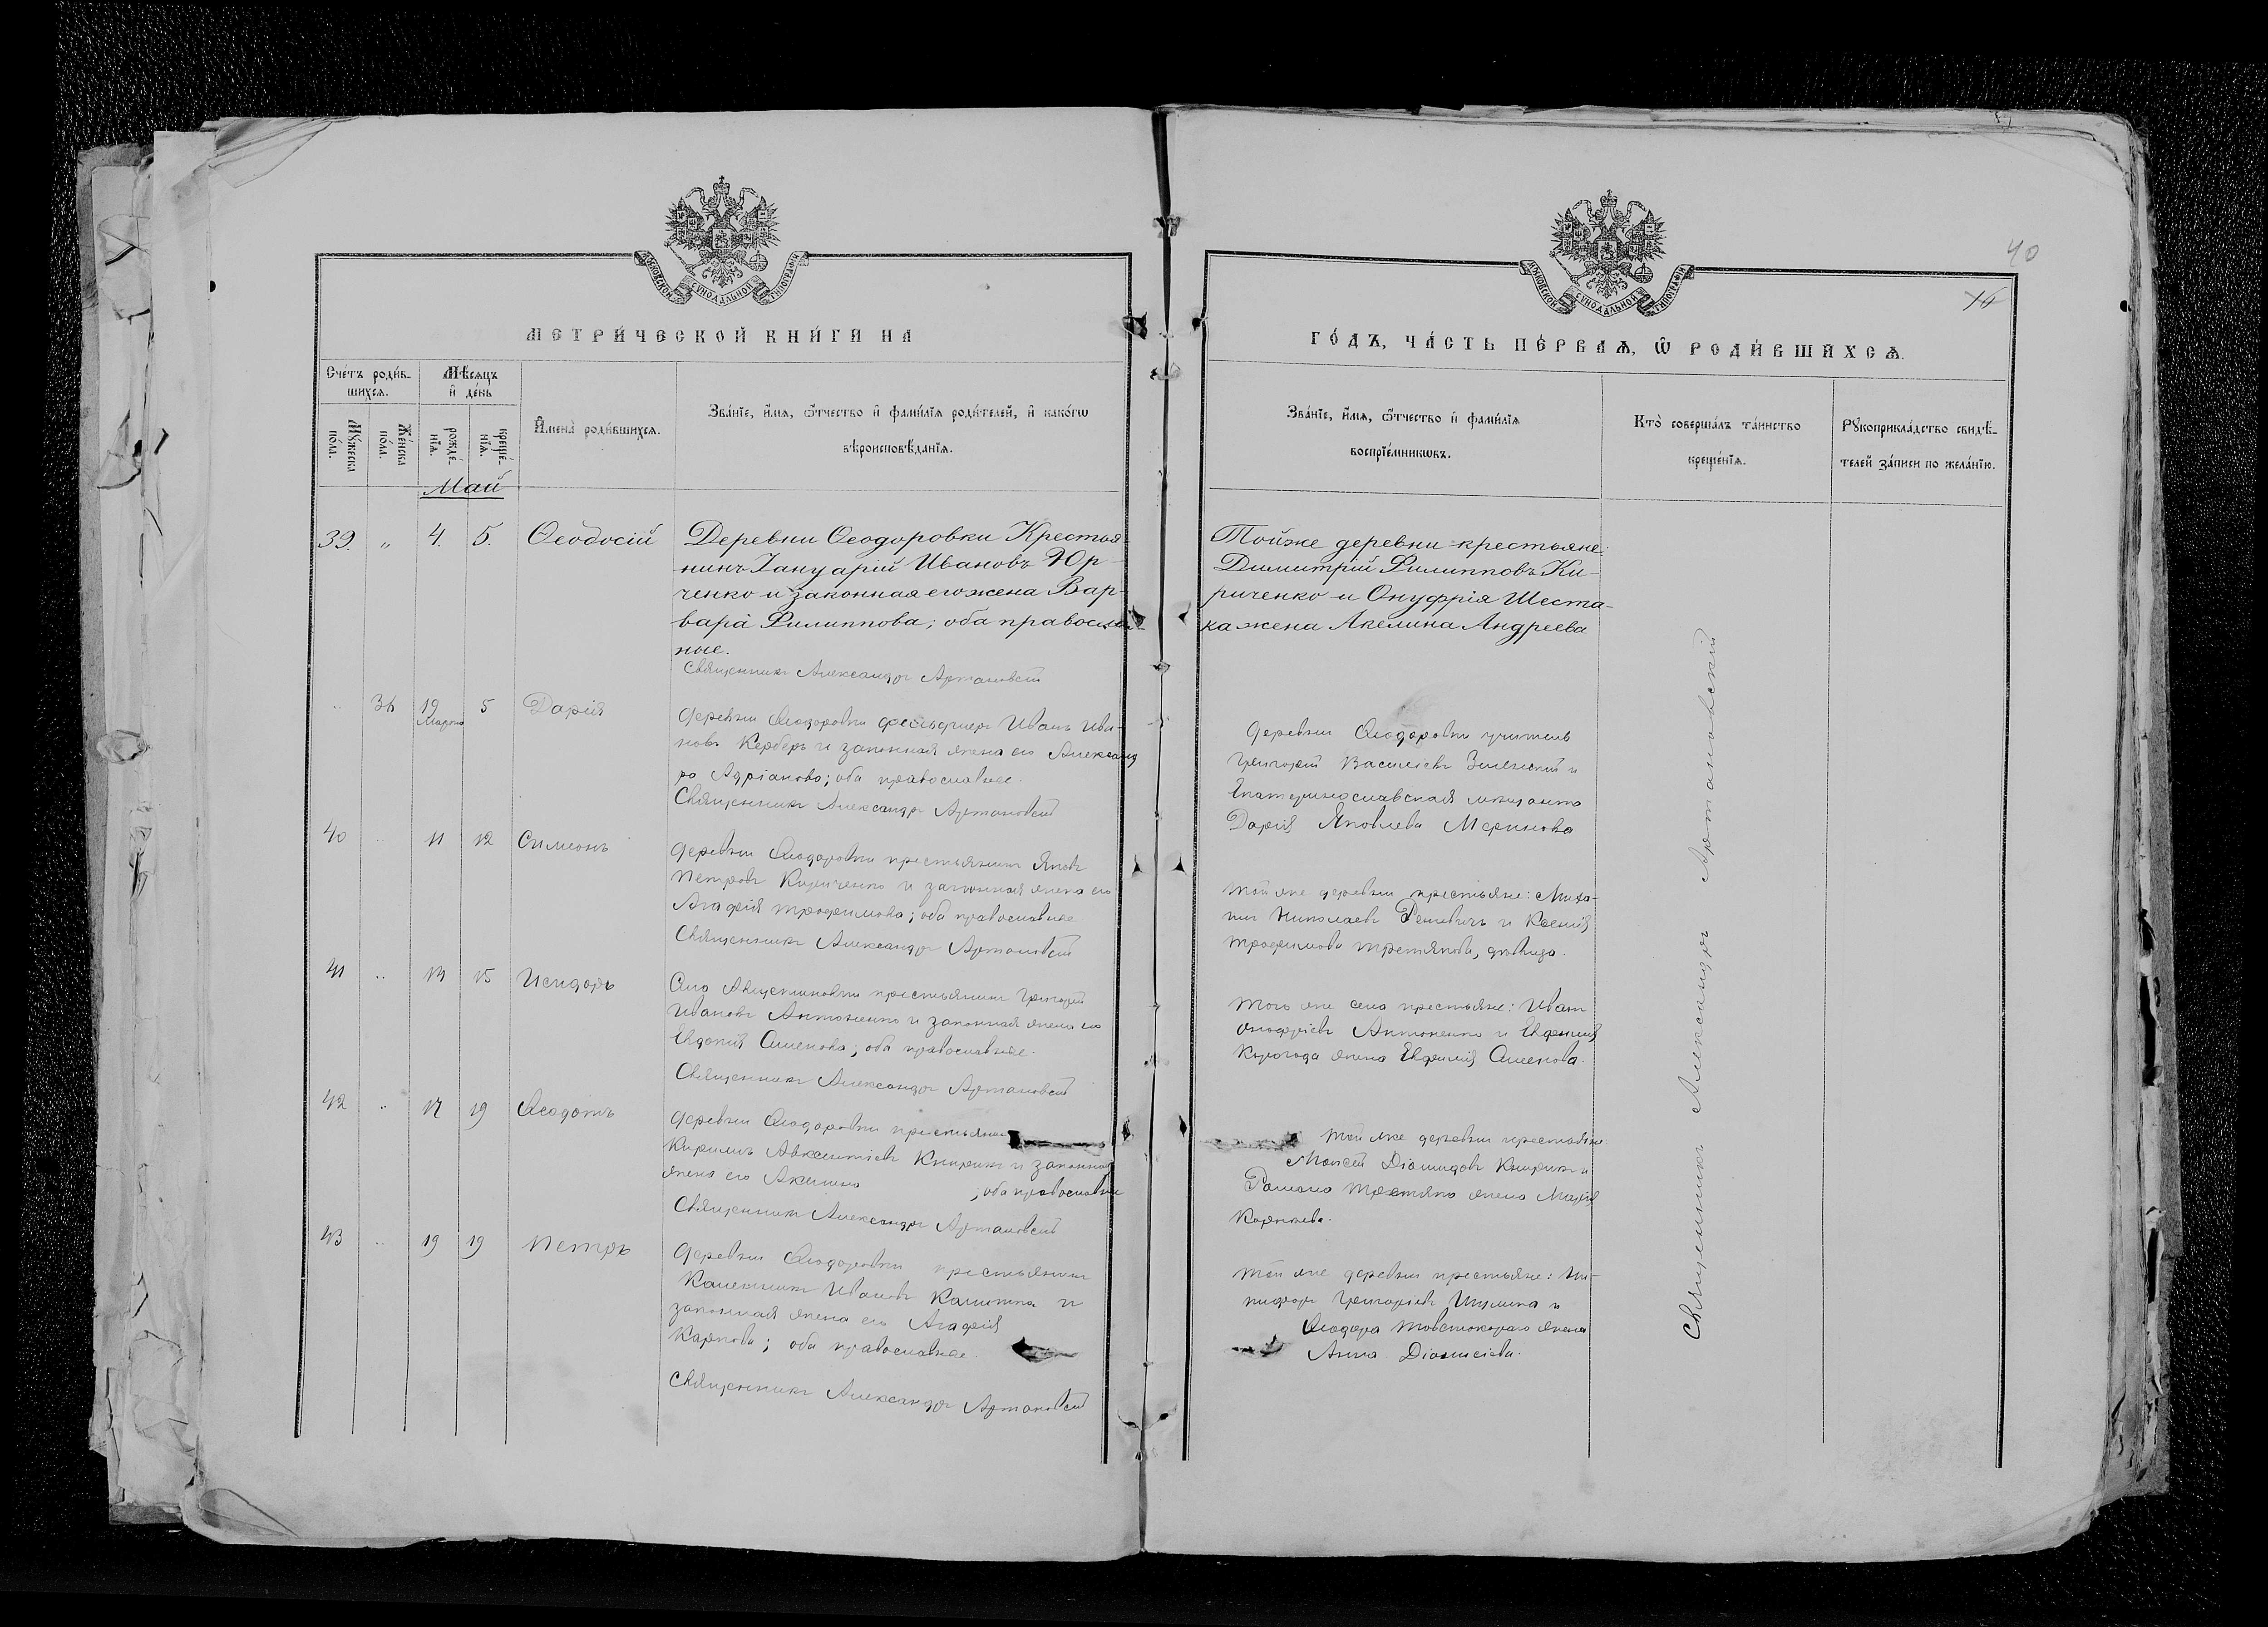 40
16
МОСКОВСКОЙ СУНОДАЛЬНОЙ ТИПОГРАФІИ
МЕТРИ́ЧЕСКОЙ КНИ́ГИ НА
Сче́тъ роди́в-
шихсѧ.
Мѣ́сѧцъ
и҆ де́нь
Мꙋ́жеска
по́ла.
Же́нска
по́ла.
рожде́-
нїѧ.
креще́-
нїѧ.
И҆мена̀ роди́вшихсѧ.
Зва́нїе, и҆́мѧ, ѻ҆́тчество и҆ фами́лїѧ роди́телей, и҆ како́гѡ
вѣроисповѣ́данїѧ.
Май
39. „ 4. 5. Ѳеодосій
Деревни Ѳеодоровки Крестья-
нинъ Іануарій Ивановъ Юр-
ченко и законная его жена Вар-
вара Филиппова; оба православ-
ные.
Священникъ Александръ Артановскій
„ 36 19 5 Дарія
Марта
Деревни Ѳеодоровки фельдшеръ Иванъ Ива-
новъ Керберъ и законная жена его Александ
ра Адріанова; оба православные.
Священникъ Александръ Артановскій
40 „ 11 12 Симеонъ
Деревни Ѳеодоровки крестьянинъ Яковъ
Петровъ Кириченко и законная жена его
Агафія Трофимова; оба православные
Священникъ Александръ Артановскій
41 „ 14 15 Исидоръ
Села Августиновки крестьянинъ Григорій
Ивановъ Антоненко и законная жена его
Евдокія Симеонова; оба православные.
Священникъ Александръ Артановскій
42 „ 17 19 Ѳеодотъ
Деревни Ѳеодоровки крестьянинъ
Кириллъ Авксентіевъ Книрикъ и законная
жена его Акилина ; оба православные
Священникъ Александръ Артановскій
43 „ 19 19 Петръ
Деревни Ѳеодоровки крестьянинъ
Каленникъ Ивановъ Калитка и
законная жена его Агафія
Карпова; оба православные.
Священникъ Александръ Артановскій
МОСКОВСКОЙ СУНОДАЛЬНОЙ ТИПОГРАФІИ
ГО́ДЪ, ЧА́СТЬ ПЕ́РВАѦ, Ѡ҆ РОДИ́ВШИХСѦ.
Зва́нїе, и҆́мѧ, ѻ҆́тчество и҆ фами́лїѧ
воспрїе́мникѡвъ.
Кто̀ соверша́лъ та́инство
креще́нїѧ.
Рꙋкоприкла́дство свидѣ́-
телей за́писи по жела́нїю.
Тойже деревни крестьяне:
Димитрій Филипповъ Ки-
риченко и Онуфрія Шеста-
ка жена Акелина Андреева
Деревни Ѳеодоровки учитель
Григорій Васильевъ Зиленскій и
Екатеринославская мѣщанка
Дарія Яковлева Меринова
Той же деревни крестьяне: Миха-
илъ Николаевъ Реневичъ и Ксенія
Трофимова Третякова, дѣвица.
Того же села крестьяне: Иванъ
Онофріевъ Антоненко и Евфимія
жена Евфимія Симеонова.
Той же деревни крестьяне:
Моисей Діомидовъ Книрикъ и
Романа Третяка жена Марія
Корнеева.
Той же деревни крестьяне: Ни-
кифоръ Григорьевъ и
Ѳеодора Товстокораго жена
Анна Діонисіева.
Священникъ Александръ Артановскій